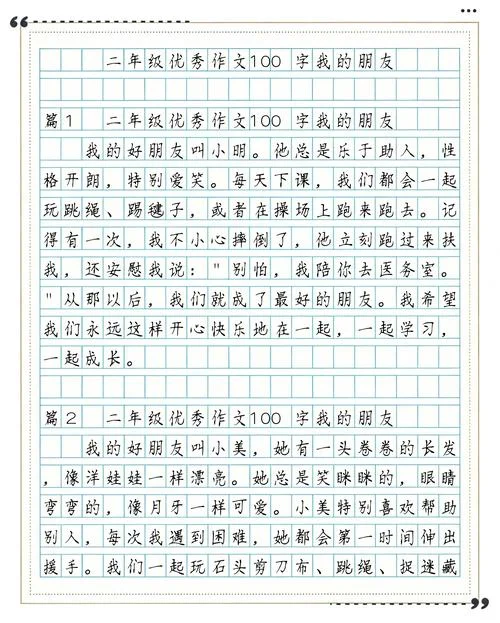 二年级优秀作文100 字我的朋友
篇1 二年级优秀作文100 字我的朋友
我的好朋友叫小明。他总是乐于助人，性
格开朗，特别爱笑。每天下课，我们都会一起
玩跳绳、踢毽子，或者在操场上跑来跑去。记
得有一次，我不小心摔倒了，他立刻跑过来扶
我，还安慰我说："别怕，我陪你去医务室。
"从那以后，我们就成了最好的朋友。我希望
我们永远这样开心快乐地在一起，一起学习，
一起成长。
篇2 二年级优秀作文100 字我的朋友
我的好朋友叫小美，她有一头卷卷的长发
，像洋娃娃一样漂亮。她总是笑眯眯的，眼睛
弯弯的，像月牙一样可爱。小美特别喜欢帮助
别人，每次我遇到困难，她都会第一时间伸出
援手。我们一起玩石头剪刀布、跳绳、捉迷藏